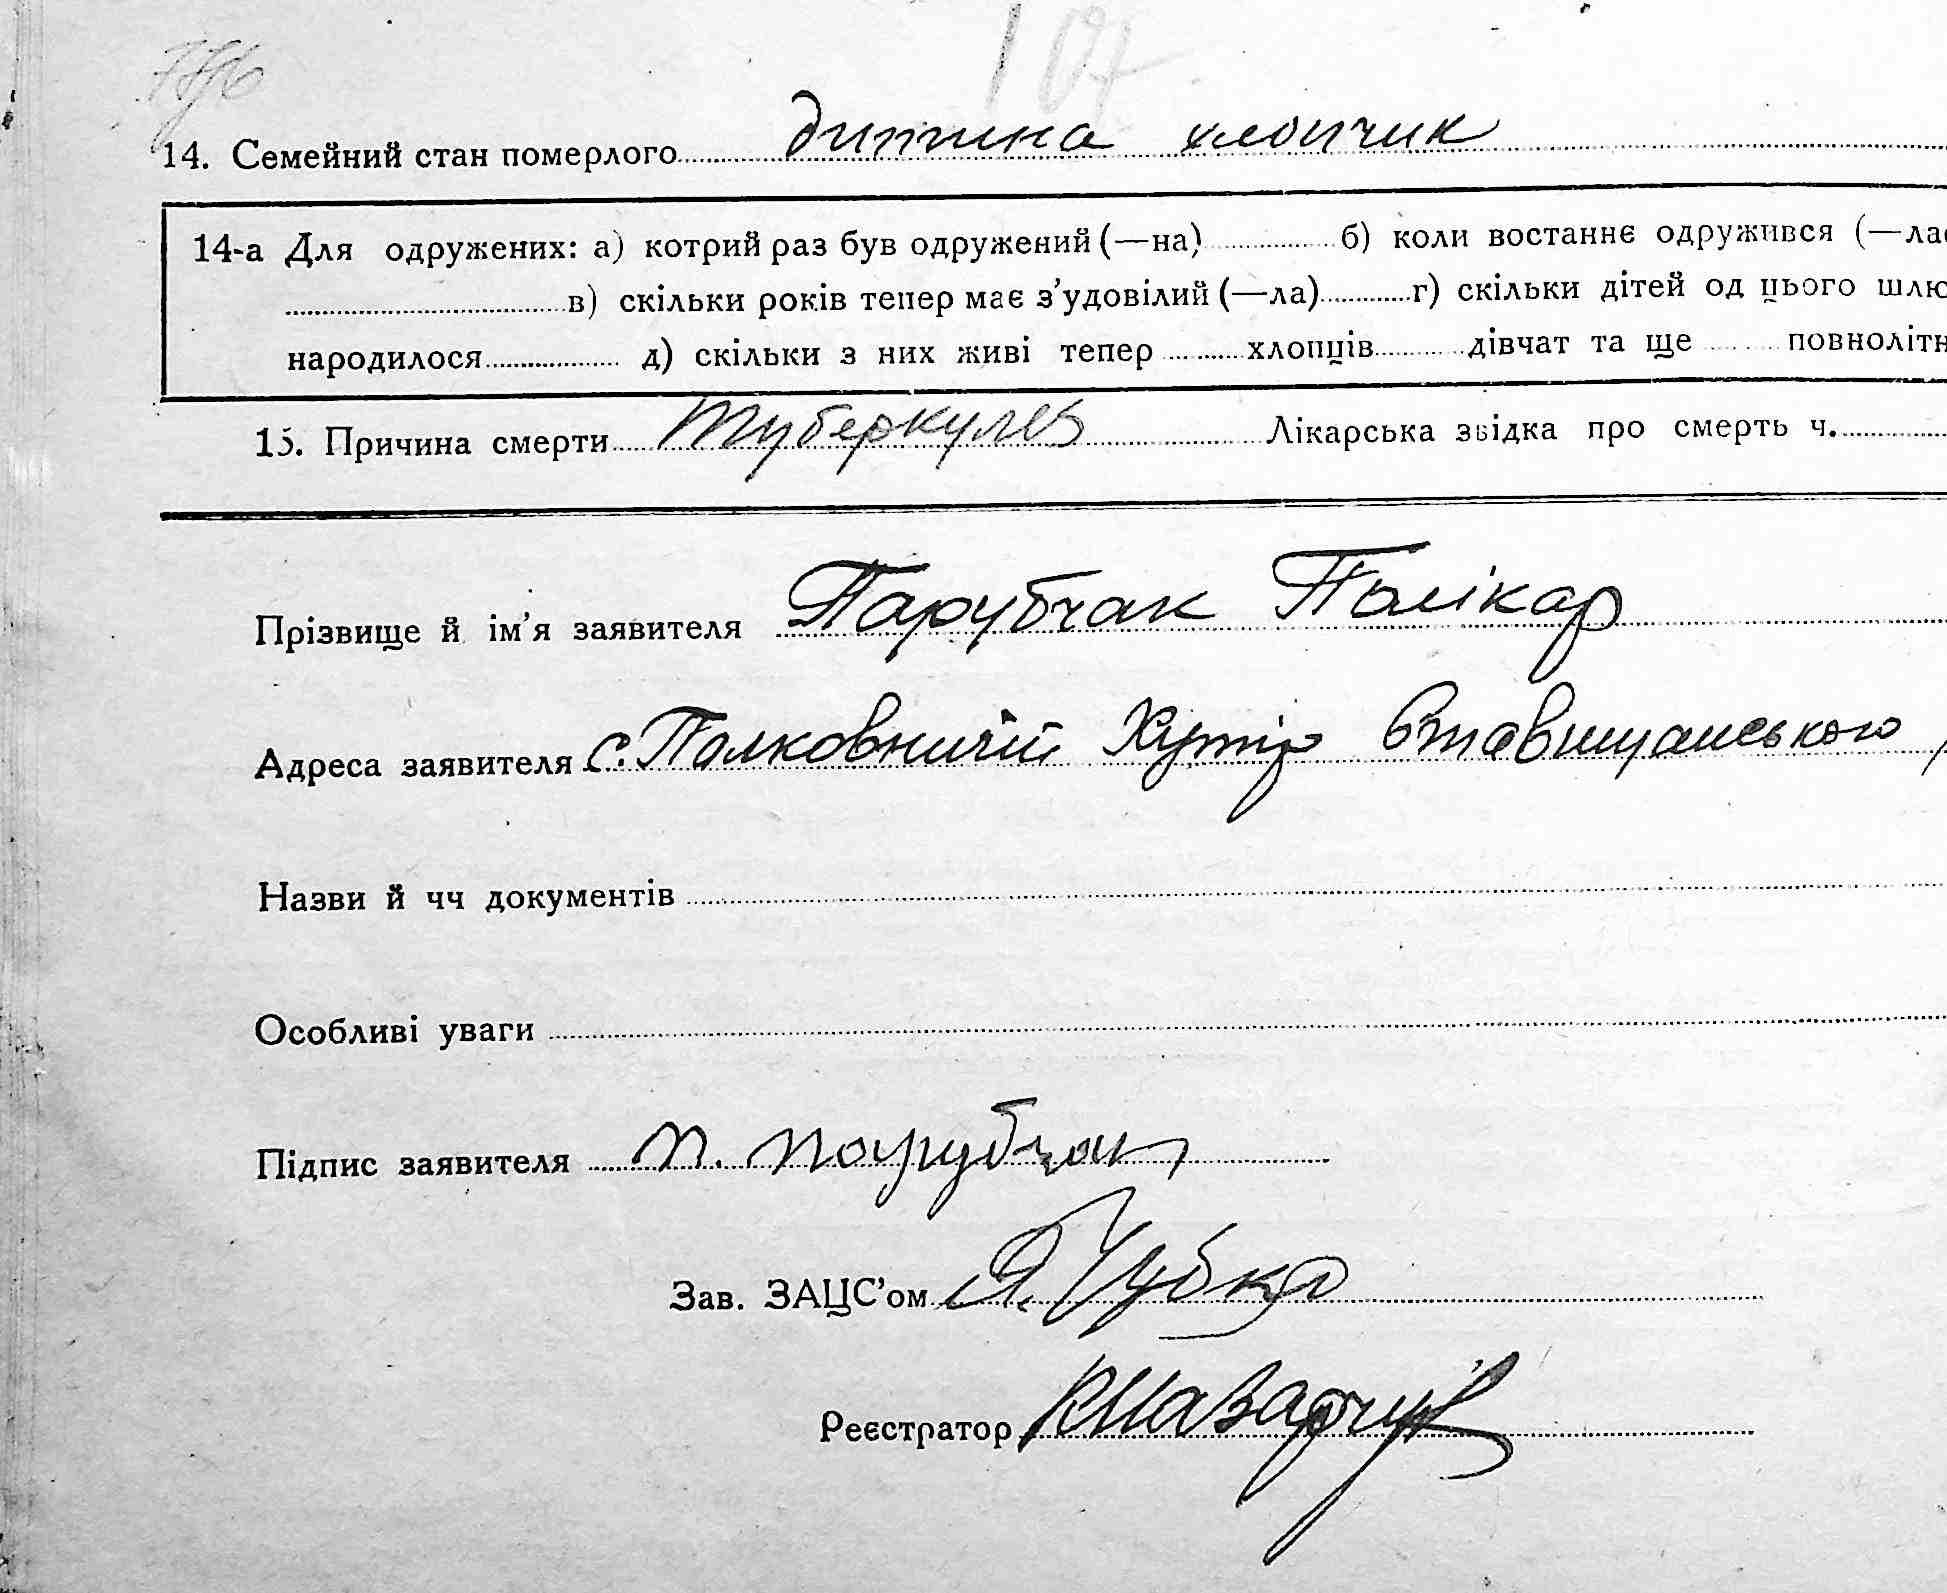 107
14. Семейний стан померлого дитина хлопчик
14-а Для одружених: а) котрий раз був одружений (—на) б) коли востаннє одружився (—ла
в) скільки років тепер має з’удовілий (—ла) г) скільки дітей од цього шлю
народилося д) скільки з них живі тепер хлопців дівчат та ще повнолітн
15. Причина смерти туберкульоз Лікарська звідка про смерть ч.
Прізвище й ім’я заявителя Парубчак Полікар
Адреса заявителя с. Полковничій Хутір Ставищанського
Назви й чч документів
Особливі уваги
Підпис заявителя П. Парубчак
Зав. ЗАЦС’ом
Реєстратор